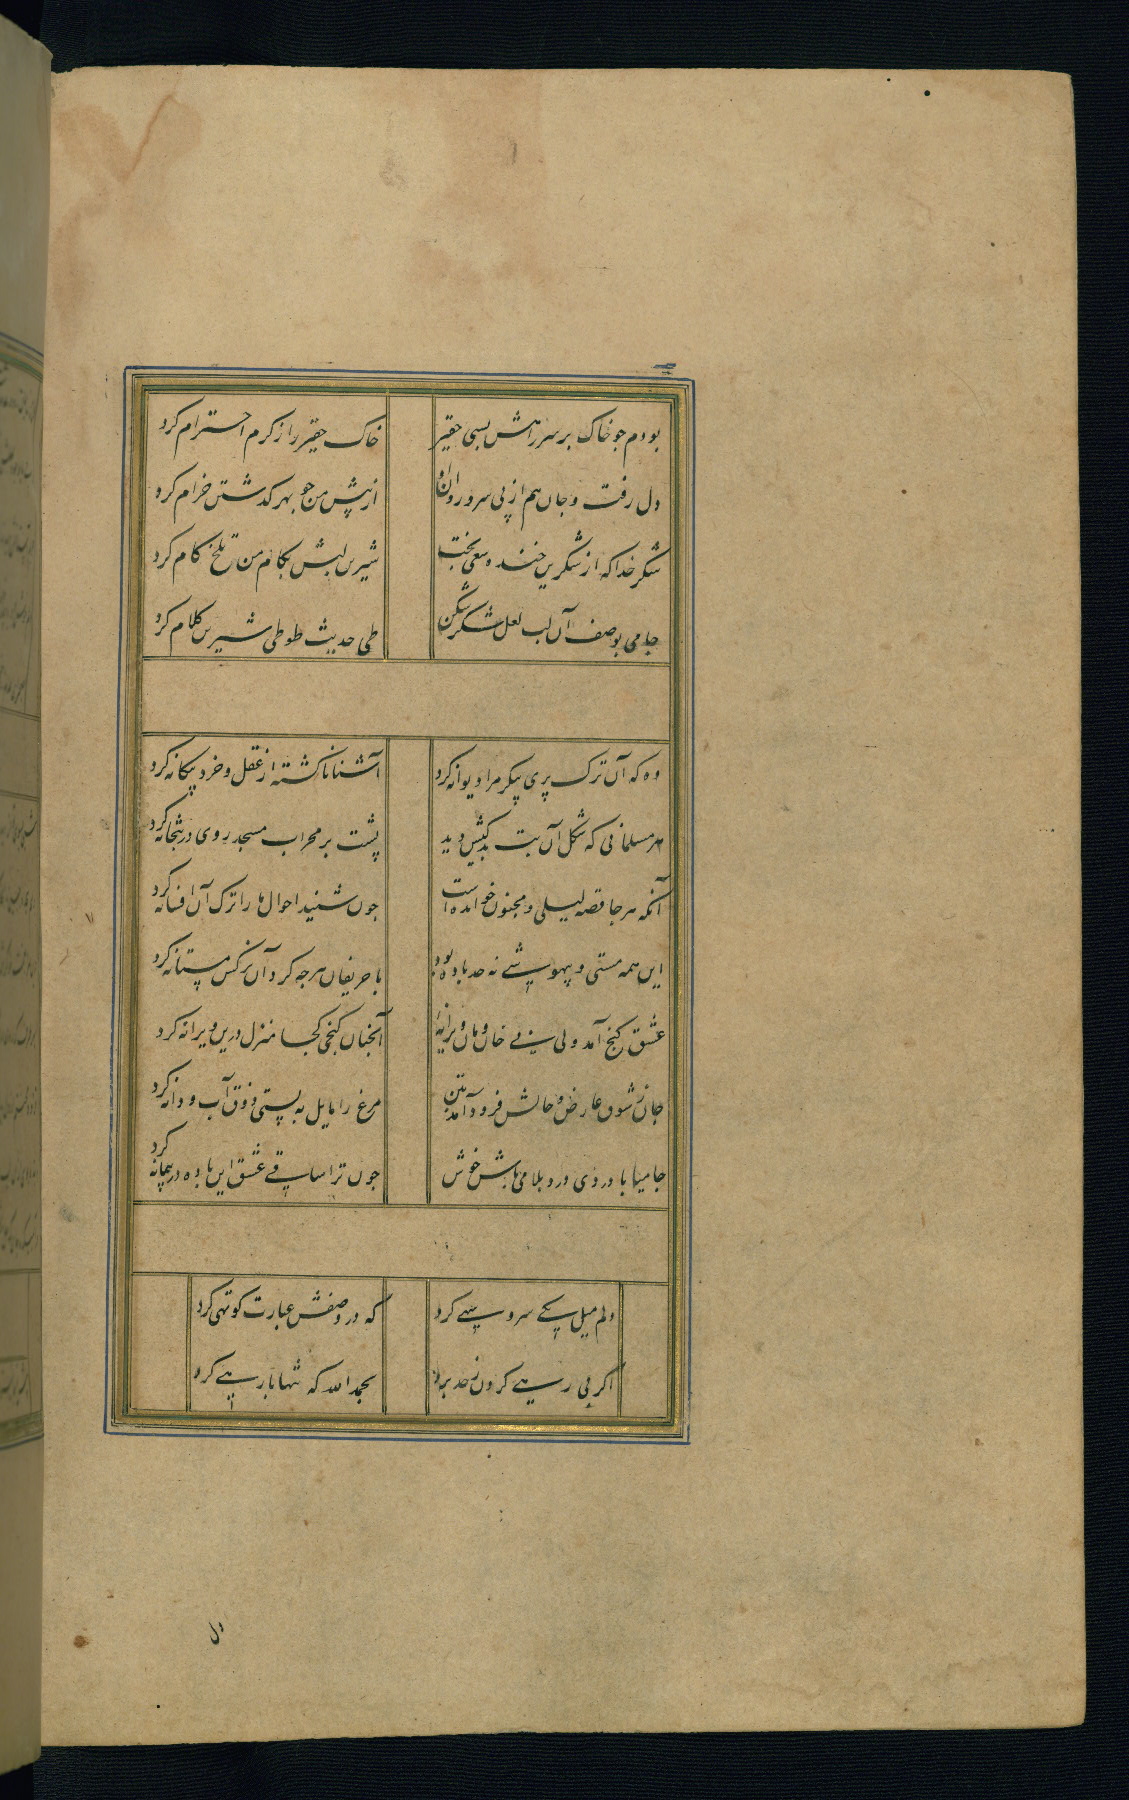 بودم جو خاک بر سر راهش بسی حقیر خاک حقیر را ز کرم احترام کرد
دل رفت و جان هم از پی سرو روان او از پیش من جو بهر کدشتن خرام کرد
شکر خدا که از شکرین خنده سعی بخت شیرین لبش بکام من تلخ کام کرد
جامی بوصف آن لب لعل شکر شکن طی حدیث طوطی شیرین کلام کرد
وه که آن ترک پری پیکر مرا دیوانه کرد آشنا ناکشته از عقل و خرد بیکانه کرد
هر مسلمانی که شکل آن بت بدکیش دید پشت بر محراب مسجد روی در بتخانه کرد
آنکه هر جا قصه لیلی و مجنون خوانده است جون شنید احوال ما را ترک آن افسانه کرد
این همه مستی و بیهوشی نه حد باده بود با حریفان هرجه کرد آن نرکس مستانه کرد
عشق کنج آمد ولی بی خان و مان ویرانه آنجنان کنجی کجا منزل درین ویرانه کرد
جان ز شوق عارض و خالش فرود آمد بتن مرغ را مایل به پستی ذوق آب و دانه کرد
جامیا با دردی درد و بلا می باش خوش جون ترا ساقی عشق این باده در پیمانه کرد
دلم میل یکی سرو سهی کرد که در وصفش عبارت کوتهی کرد
اکر بی رهی کردن نه حد بود بحمد الله که تنها با رهی کرد
دل